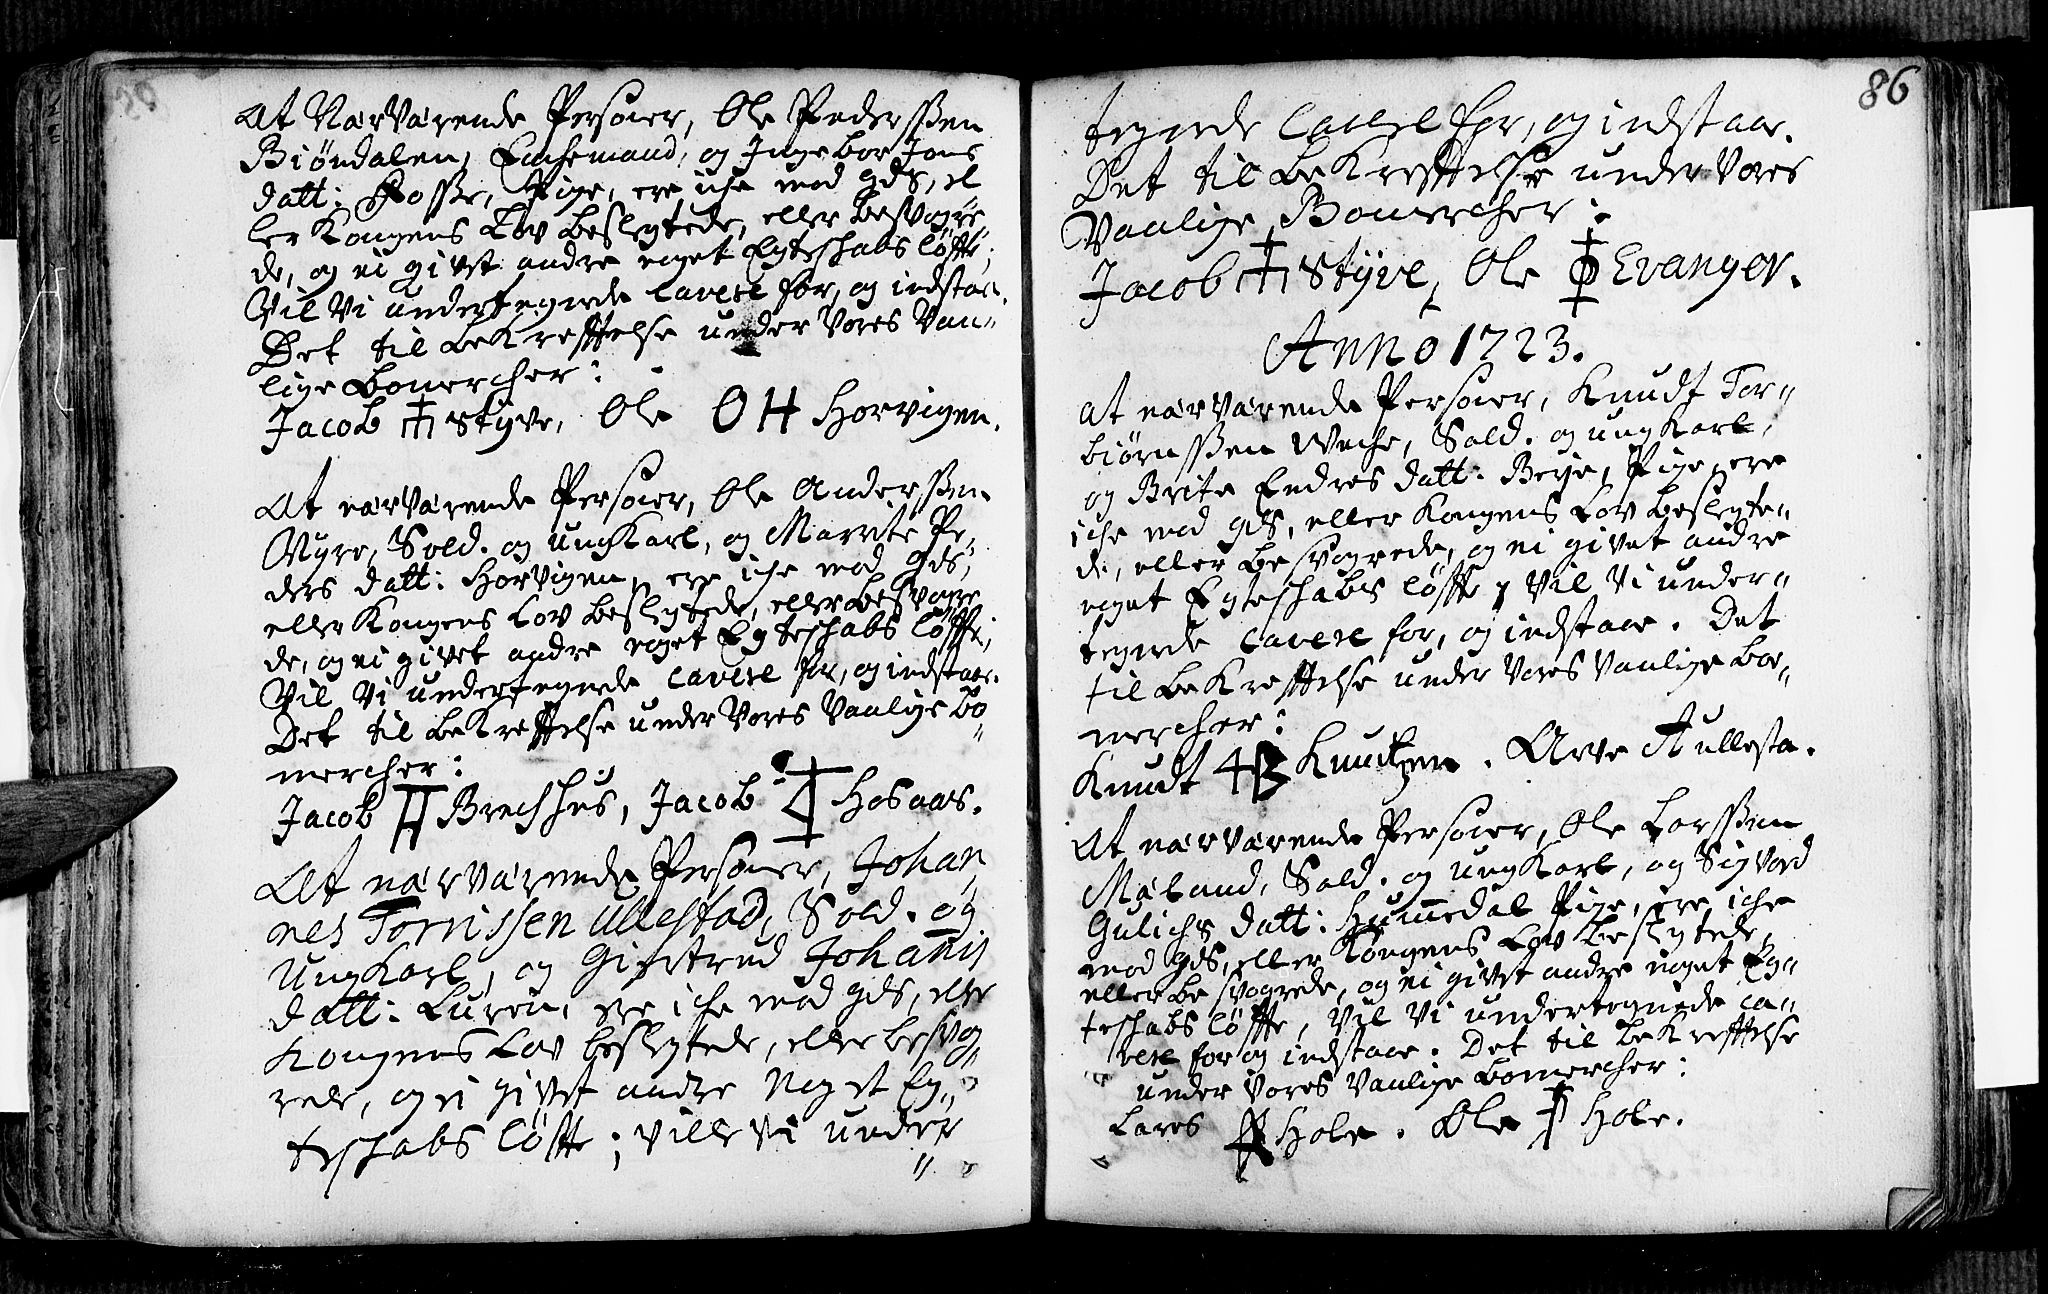 At Nærværende Personer, Ole Pedersøen
Biøndalen, Enchemand, og Ingebor Jons
datt: Rosse, Pige, ere iche med gds, el
ler Kongens Lov beslegtede, eller besvogre„
de, og ei givet andre noget Egteschabs løffte;
Vil Vi undertegnede cavere for, og indstaae.
Det til bekrefftelse under Vores Van„
lige bomercher:
Jacob Styve, Ole OH Horvigen.
At nærværende Personer, Ole Anderssen
Myre, Sold. og ungKarl, og Marite Pe„
ders datt: Horvigen, ere iche med gds,
eller Kongens Lov beslegtede, eller besvogre
de, og ei givet andre noget Egteschabs løffte;
Vil Vi undertegnede cavere for, og indstaae.
Det til bekrefftelse under Vores Vanlige bo„
mercher:
Jacob Brechhus, Jacob Hosaas.
At nærværende Personer, Johan„
nes Torrissen Ullestad, Sold. og
UngKarl, og Giertrud Johannis
datt: Luren, ere iche med gds, eller
Kongens Lov beslegtede, eller besvog„
rede, og ei givet andre noget Eg„
teschabs løffte; ville Vi under„
86
tegnede cavere for, og indstaae.
Det til bekrefftelse under Vores
Vanlige Bomercher:
Jacob Styve, Ole Evanger.
Anno 1723.
At nærværende Personer, Knudt Tor„
biørnssen Weche, Sold. og ungKarl,
og Brite Endres datt: Berje, Pige, ere
iche med gds, eller Kongens Lov beslegte„
de, eller besvogrede, og ei givet andre
noget Egteschabs løffte, Vil Vi under„
tegnede cavere for, og indstaae. Det
til bekrefftelse under Vores Vanlige bo„
mercher:
Knudt Knudtzen. Arve Aullesta.
At nærværende Personer, Ole Larssen
Mæland, Sold. og ungKarl, og Sigvord
Gulichs datt: Hummedal Pige, ere iche
med gds, eller Kongens Lov beslegtede,
eller besvogrede, og ei givet andre noget Eg„
teschabs løffte, Vil Vi undertegnede ca„
vere for og indstaae. Det til bekrefftelse
under Vores Vanlige bomercher:
Lares Hole. Ole Hole.